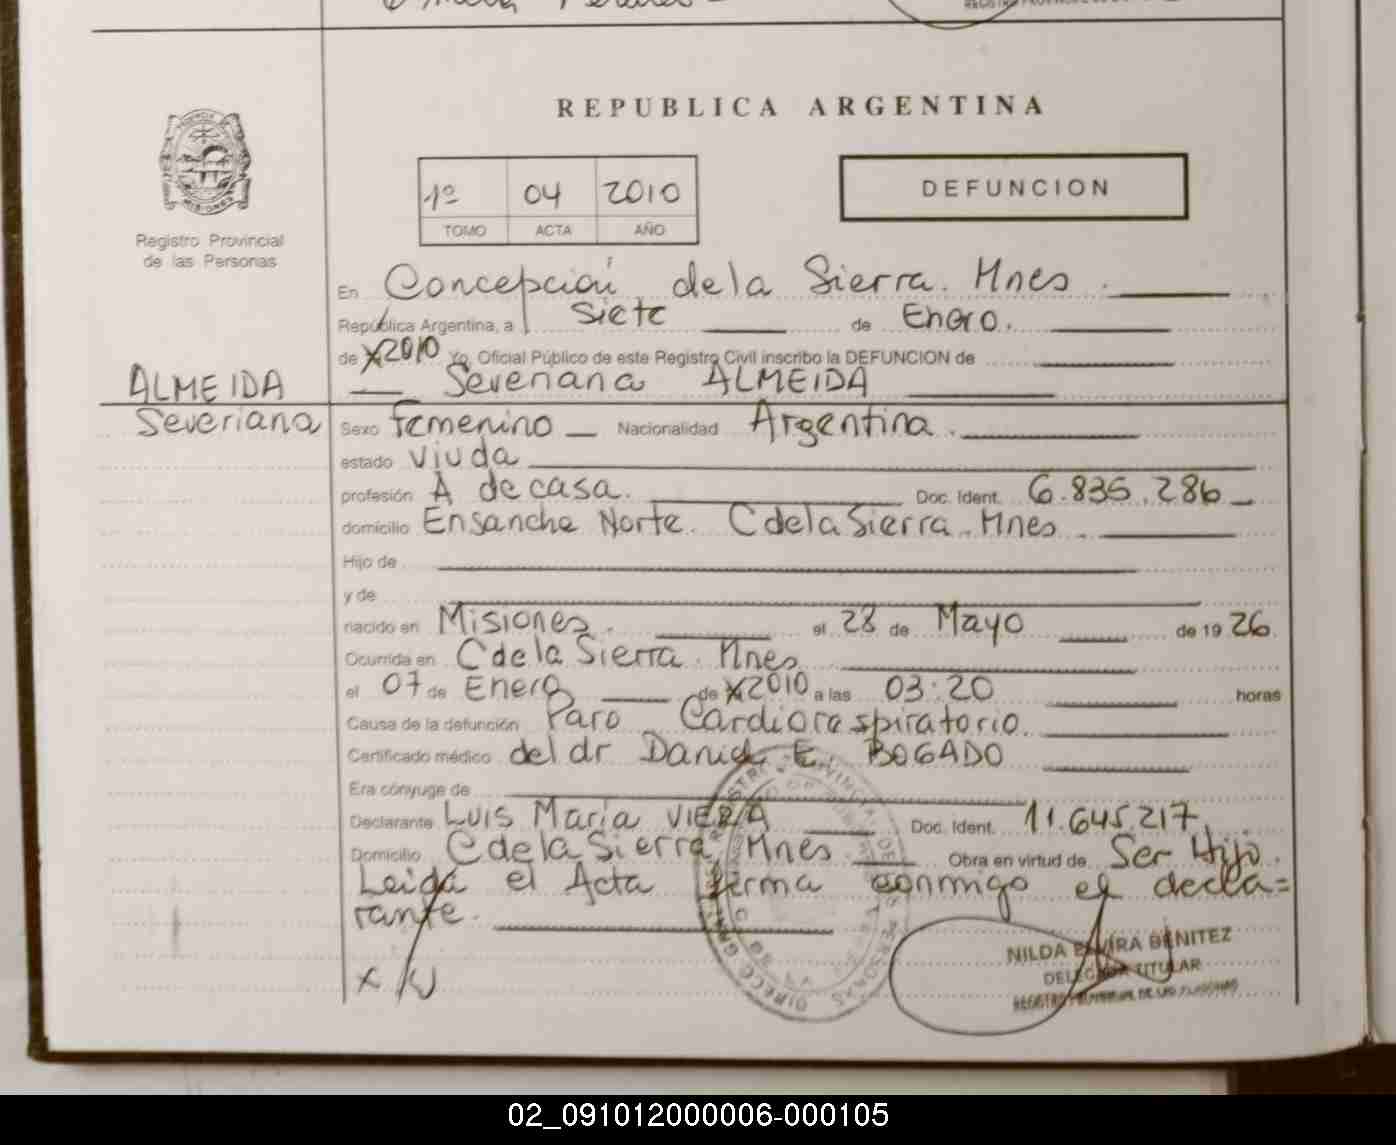 REPUBLICA ARGENTINA
1º 04 2010
TOMO ACTA AÑO
DEFUNCION
Registro Provincial
de las Personas
En Concepción de la Sierra. Mnes.
República Argentina, a Siete de Enero.
de 2010 Yo, Oficial Público de este Registro Civil inscribo la DEFUNCION de
Severiana ALMEIDA
ALMEIDA
Severiana
Sexo femenino Nacionalidad Argentina.
estado Viuda
profesión A de casa. Doc. Ident. 6.835.286
domicilio Ensanche Norte. C de la Sierra. Mnes.
Hijo de
y de
nacido en Misiones. el 28 de Mayo de 19 26
Ocurrida en C de la Sierra. Mnes
el 07 de Enero de 2010 a las 03:20 horas
Causa de la defunción Paro Cardiorespiratorio.
Certificado médico del dr Daniel E. BOGADO
Era cónyuge de
Declarante Luis María VIERA Doc. Ident. 11.645.217
Domicilio C de la Sierra, Mnes Obra en virtud de Ser Hijo.
Leida el Acta firma conmigo el decla=
rante.
NILDA ELVIRA BENITEZ
DELEGADA TITULAR
REGISTRO PROVINCIAL DE LAS PERSONAS
02_091012000006-000105